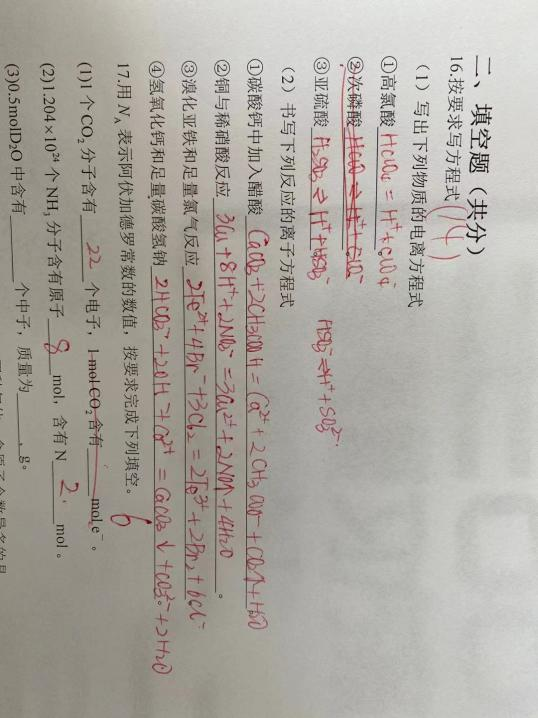 二、填空题（共分）
16.按要求写方程式 (14)
（1）写出下列物质的电离方程式
①高氯酸 HClO₄ = H⁺ + ClO₄⁻
②次磷酸 HClO ⇌ H⁺ + ClO⁻
③亚硫酸 H₂SO₃ ⇌ H⁺ + HSO₃⁻ HSO₃⁻ ⇌ H⁺ + SO₃²⁻
（2）书写下列反应的离子方程式
①碳酸钙中加入醋酸 CaCO₃ + 2CH₃COOH = Ca²⁺ + 2CH₃COO⁻ + CO₂↑ + H₂O
②铜与稀硝酸反应 3Cu + 8H⁺ + 2NO₃⁻ = 3Cu²⁺ + 2NO↑ + 4H₂O 。
③溴化亚铁和足量氯气反应 2Fe²⁺ + 4Br⁻ + 3Cl₂ = 2Fe³⁺ + 2Br₂ + 6Cl⁻
④氢氧化钙和足量碳酸氢钠 2HCO₃⁻ + 2OH⁻ + Ca²⁺ = CaCO₃↓ + CO₃²⁻ + 2H₂O 。
17.用 N_A 表示阿伏加德罗常数的数值，按要求完成下列填空。 6
(1)1 个CO₂ 分子含有 22 个电子，1 mol CO₂ 含有 mol e⁻。
(2)1.204×10²⁴ 个 NH₃ 分子含有原子 8 mol，含有 N 2 mol。
(3)0.5molD₂O 中含有 个中子，质量为 g。